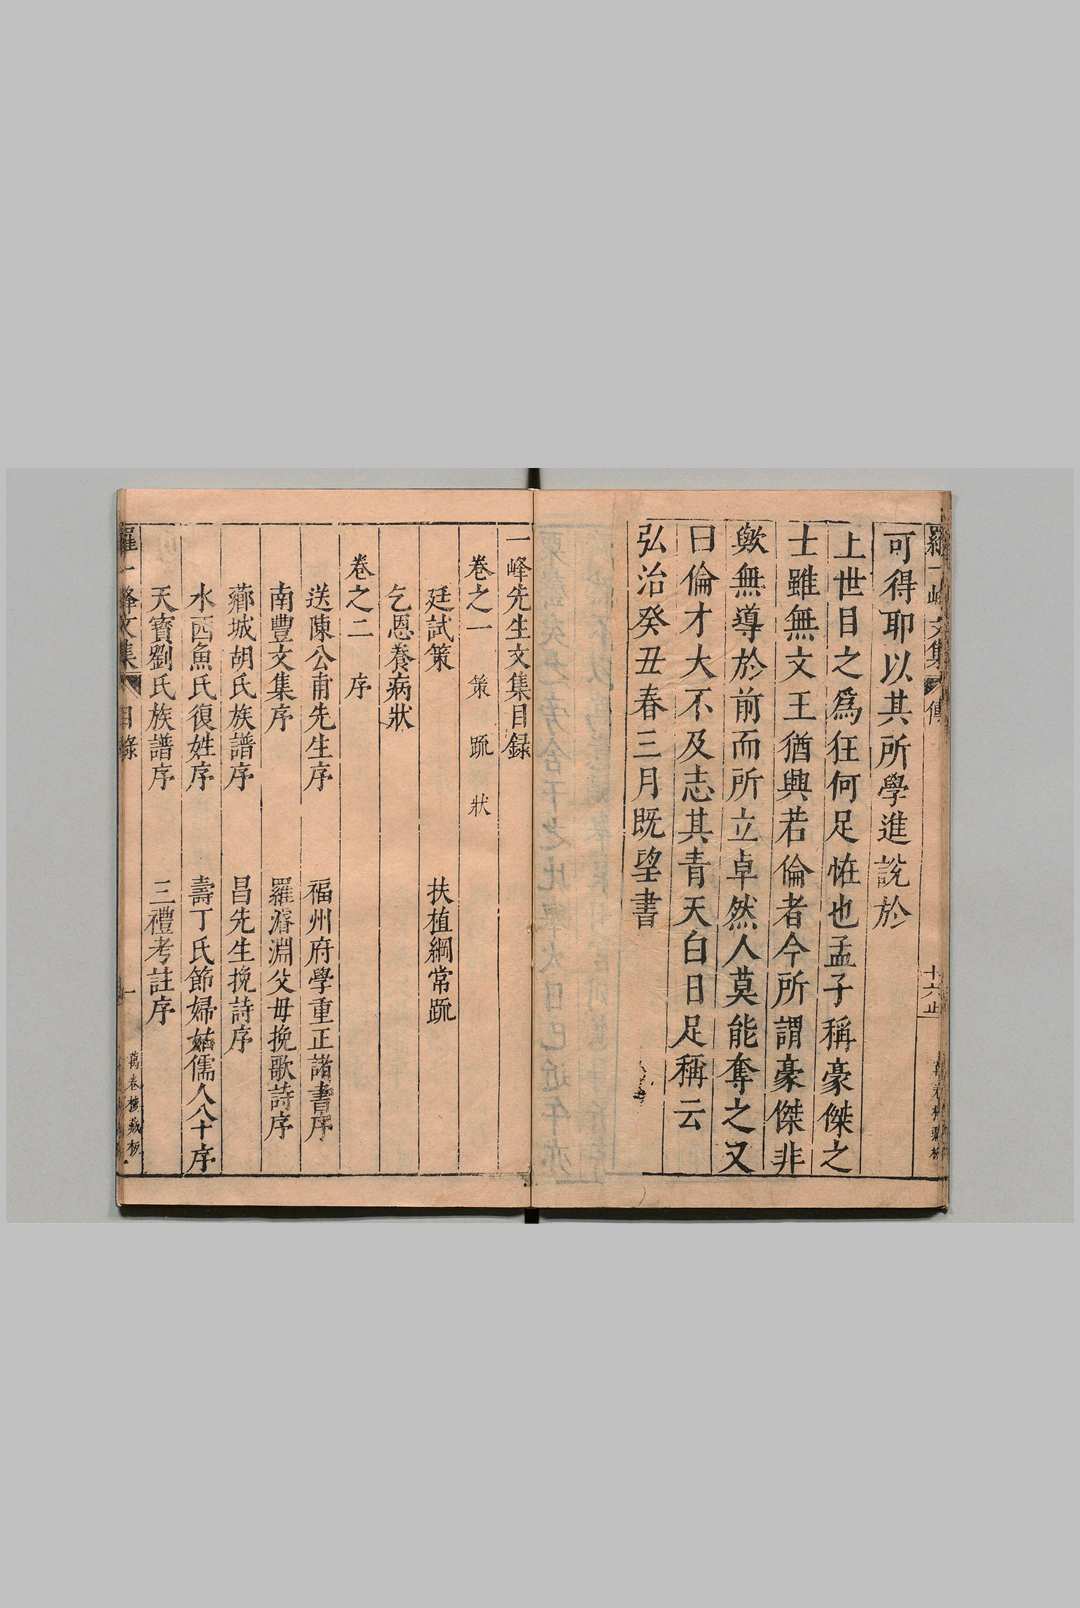 可得耶以其所學進說於
上世目之爲狂何足恠也孟子稱豪傑之
士雖無文王猶興若倫者今所謂豪傑非
歟無導於前而所立卓然人莫能奪之又
曰倫才大不及志其青天白日足稱云
弘治癸丑春三月既望書
十六止
一峰先生文集目録
卷之一 策 䟽 狀
廷試策 扶植綱常䟽
乞恩養病狀
卷之二 序
送陳公甫先生序 福州府學重正諸書序
南豊文集序 羅濬淵父母挽歌詩序
薌城胡氏族譜序 昌先生挽詩序
水西魚氏復姓序 壽丁氏節婦姑儒人八十序
天寳劉氏族譜序 三禮考註序
羅一峰文集 目錄 一 萬卷樓藏板